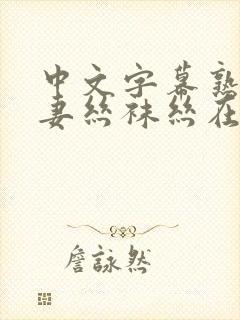 中文字幕熟
妻丝袜丝在
詹詠然